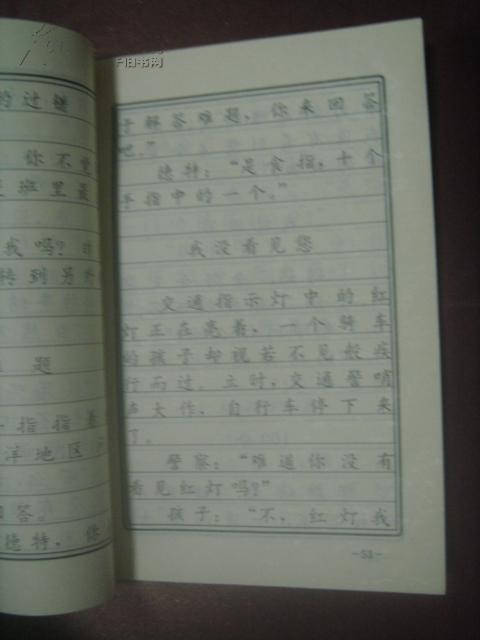 的过错
你不觉
班里最
我吗？
转到另外
题
指指着
洋地区
回答。
德特，你
于解答难题，你来回答
吧。”
德特：“是食指，十个
手指中的一个。”
我没看见您
交通指示灯中的红
灯正在亮着，一个骑车
的孩子却视若不见般疾
行而过。立时，交通警哨
声大作，自行车停下来
了。
警察：“难道你没有
看见红灯吗？”
孩子：“不，红灯我
—53—